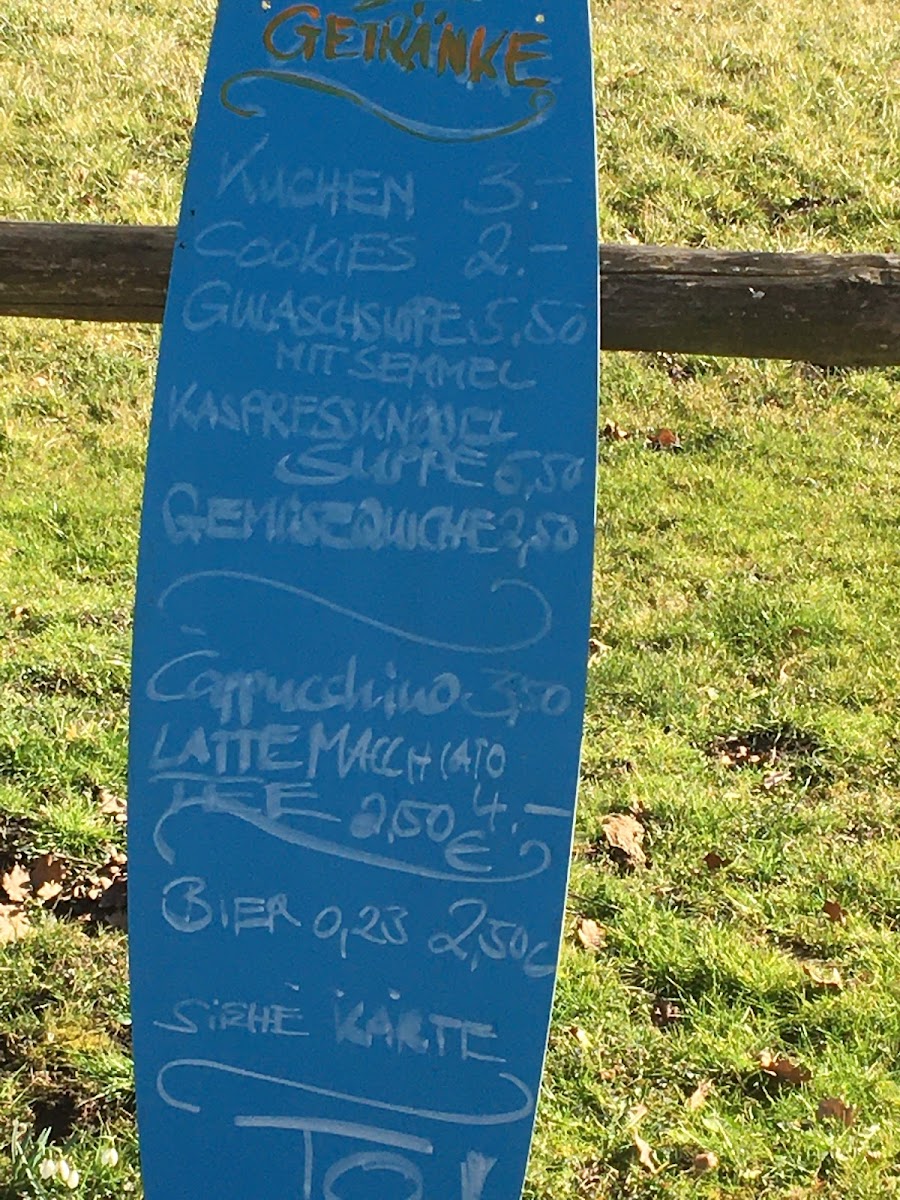 GETRÄNKE
KUCHEN 3.-
COOKIES 2.-
GULASCHSUPPE 5,50
MIT SEMMEL
KASPRESSKNÖDEL
SUPPE 6,50
GEMÜSEQUICHE 2,50
Cappucchino 3,50
LATTE MACCHIATO
4.-
TEE 2,50 €
BIER 0,23 2,50€
SIEHE KARTE
TO